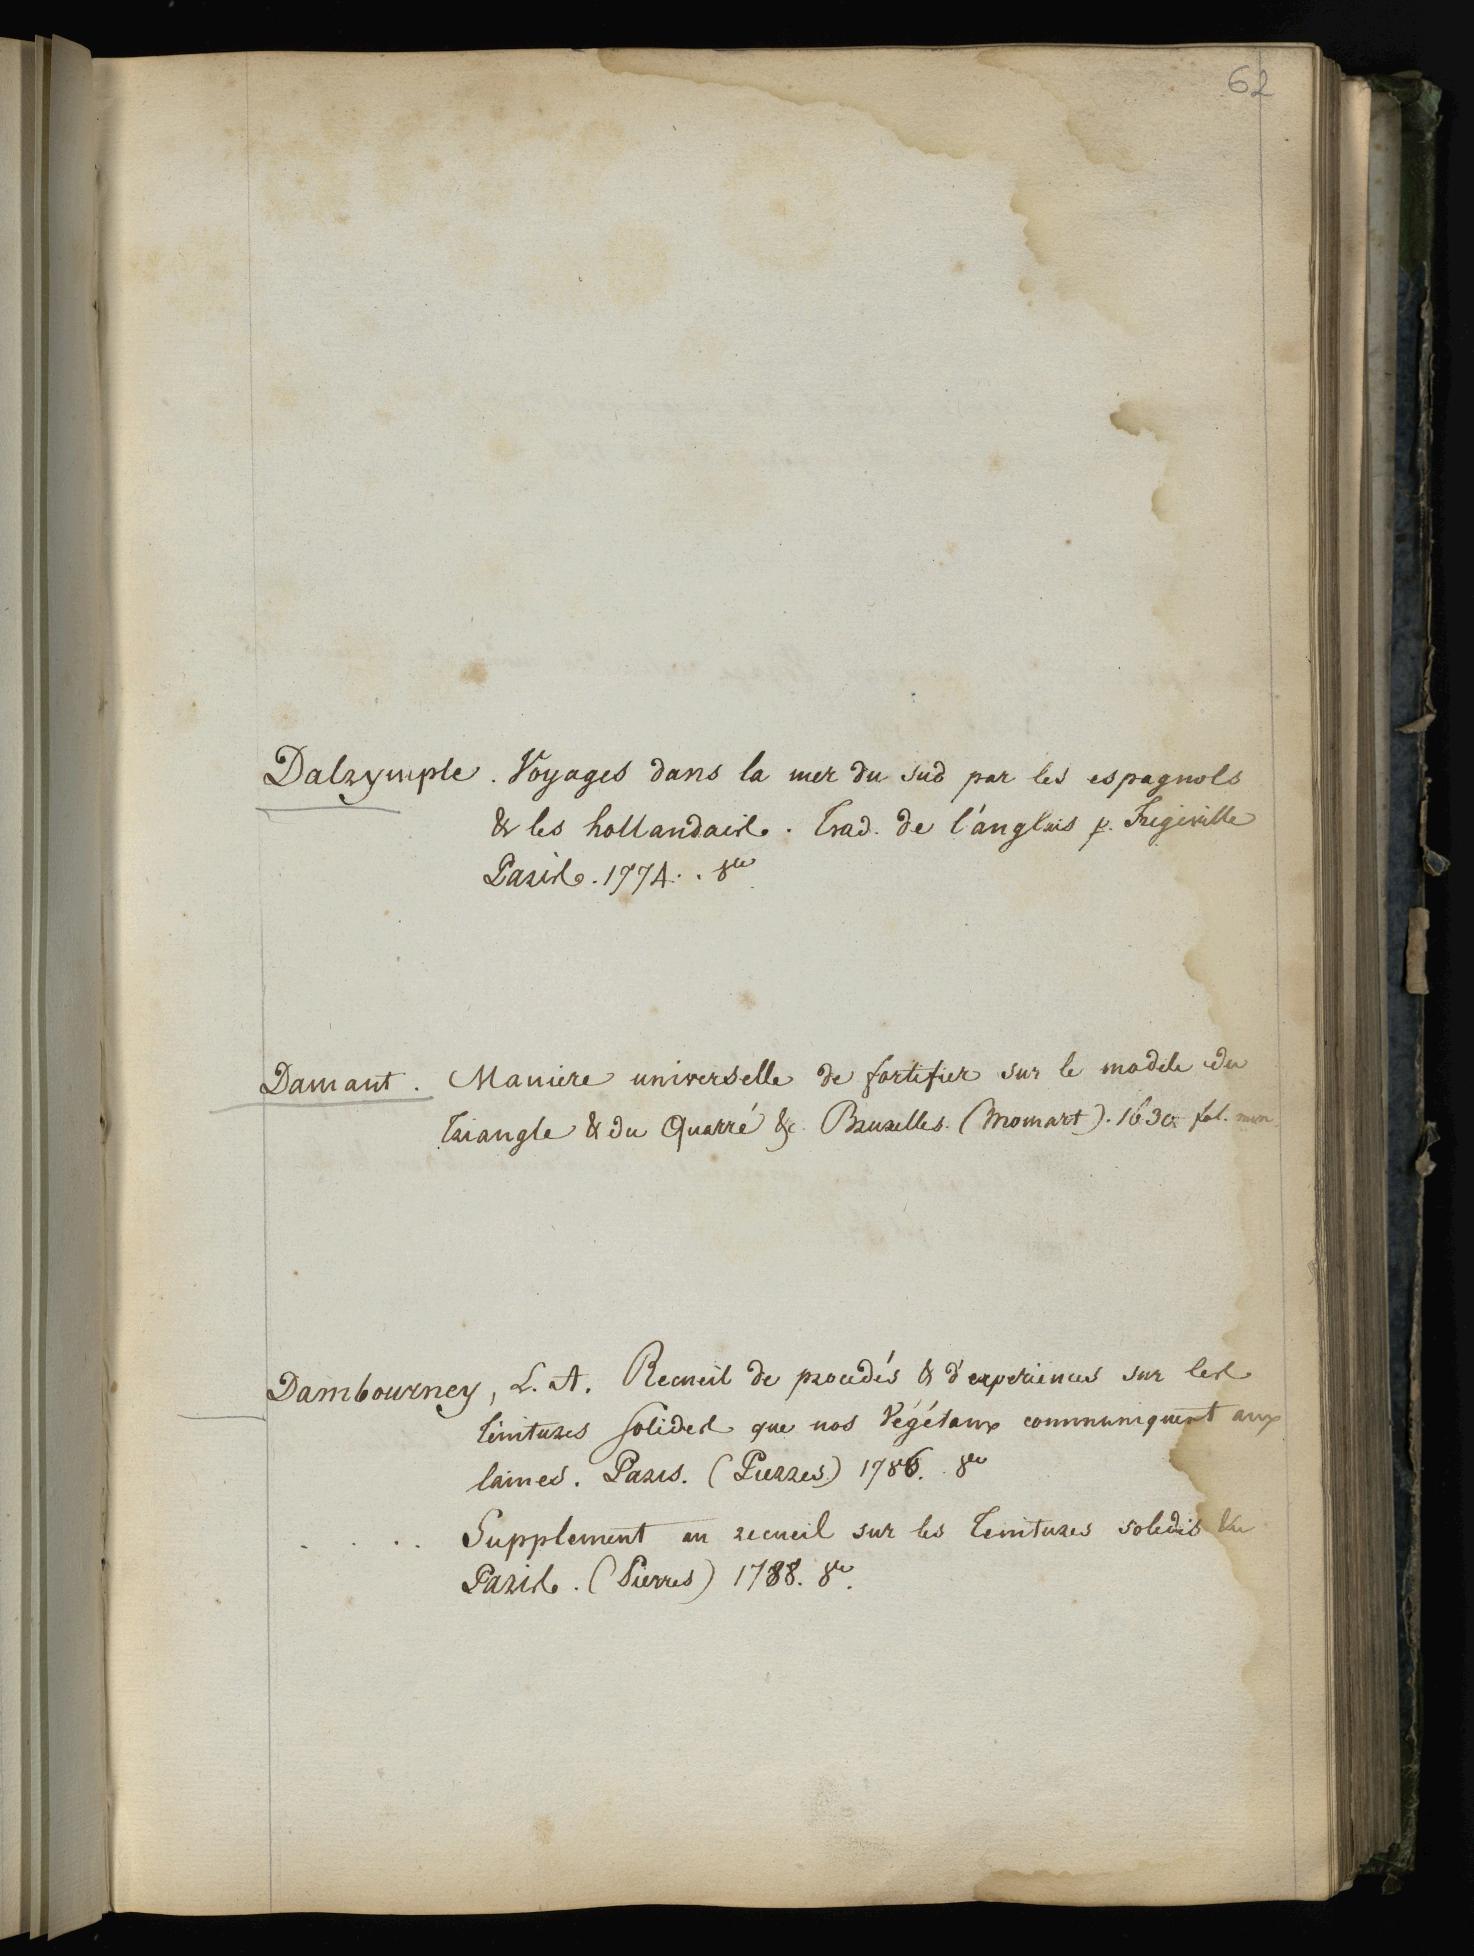 62
Dalrymple. Voyages dans la mer du sud par les espagnols
& les hollandais. Trad. de l'anglais p. Frégeville
Paris. 1774. 8vo
Damant. Maniere universelle de fortifier sur le modele du
triangle & du Quarré &c. Bruxelles. (Momart). 1630 fol. min.
Dambourney, L. A. Recueil de procedés & d'experiences sur les
teintures solides que nos Végétaux communiquent aux
laines. Paris. (Pierres) 1786. 8vo
.... Supplement au recueil sur les teintures solides &c
Paris. (Pierres) 1788. 8vo.